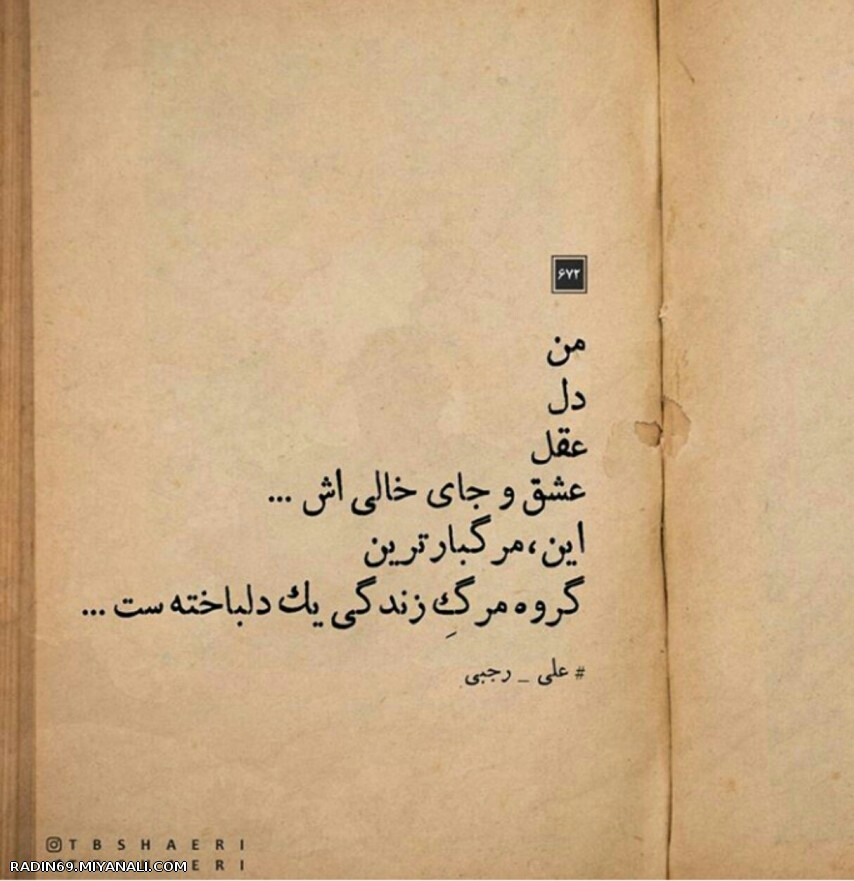 ۶۷۲
من
دل
عقل
عشق و جای خالی اش ...
این،مرگبارترین
گروه مرگِ زندگی یك دلباخته ست ...
# علی _ رجبی
TBSHAERI
RADIN69.MIYANALI.COM ERI